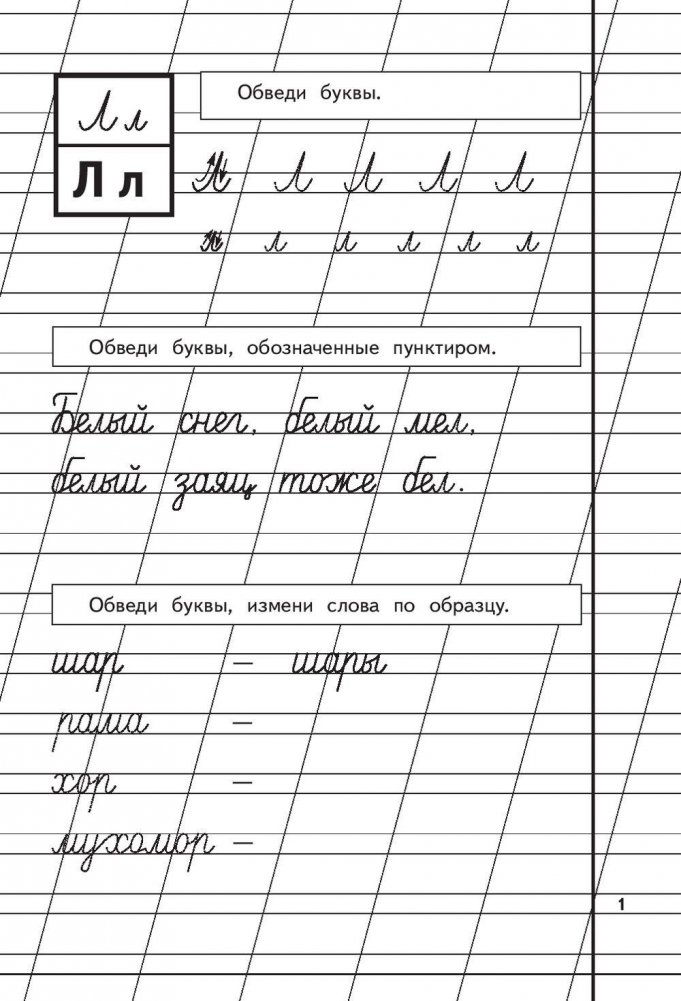 Л л
Л л
Обведи буквы.
Л Л Л Л Л
л л л л л л
Обведи буквы, обозначенные пунктиром.
Белый снег, белый мел,
белый заяц тоже бел.
Обведи буквы, измени слова по образцу.
шар – шары
рама –
хор –
мухомор –
1